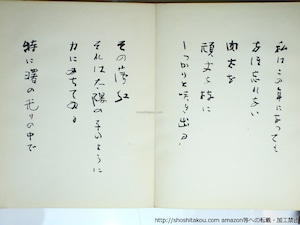 私はこの年になっても
なほ忘れない
肉太な
頑丈な枝に
しっかりと咲き出る
その薄紅
それは太陽の子のように
力にみちてゐる
特に曙の光りの中で
http://shoshitakou.com amazon等への転載・加工禁止